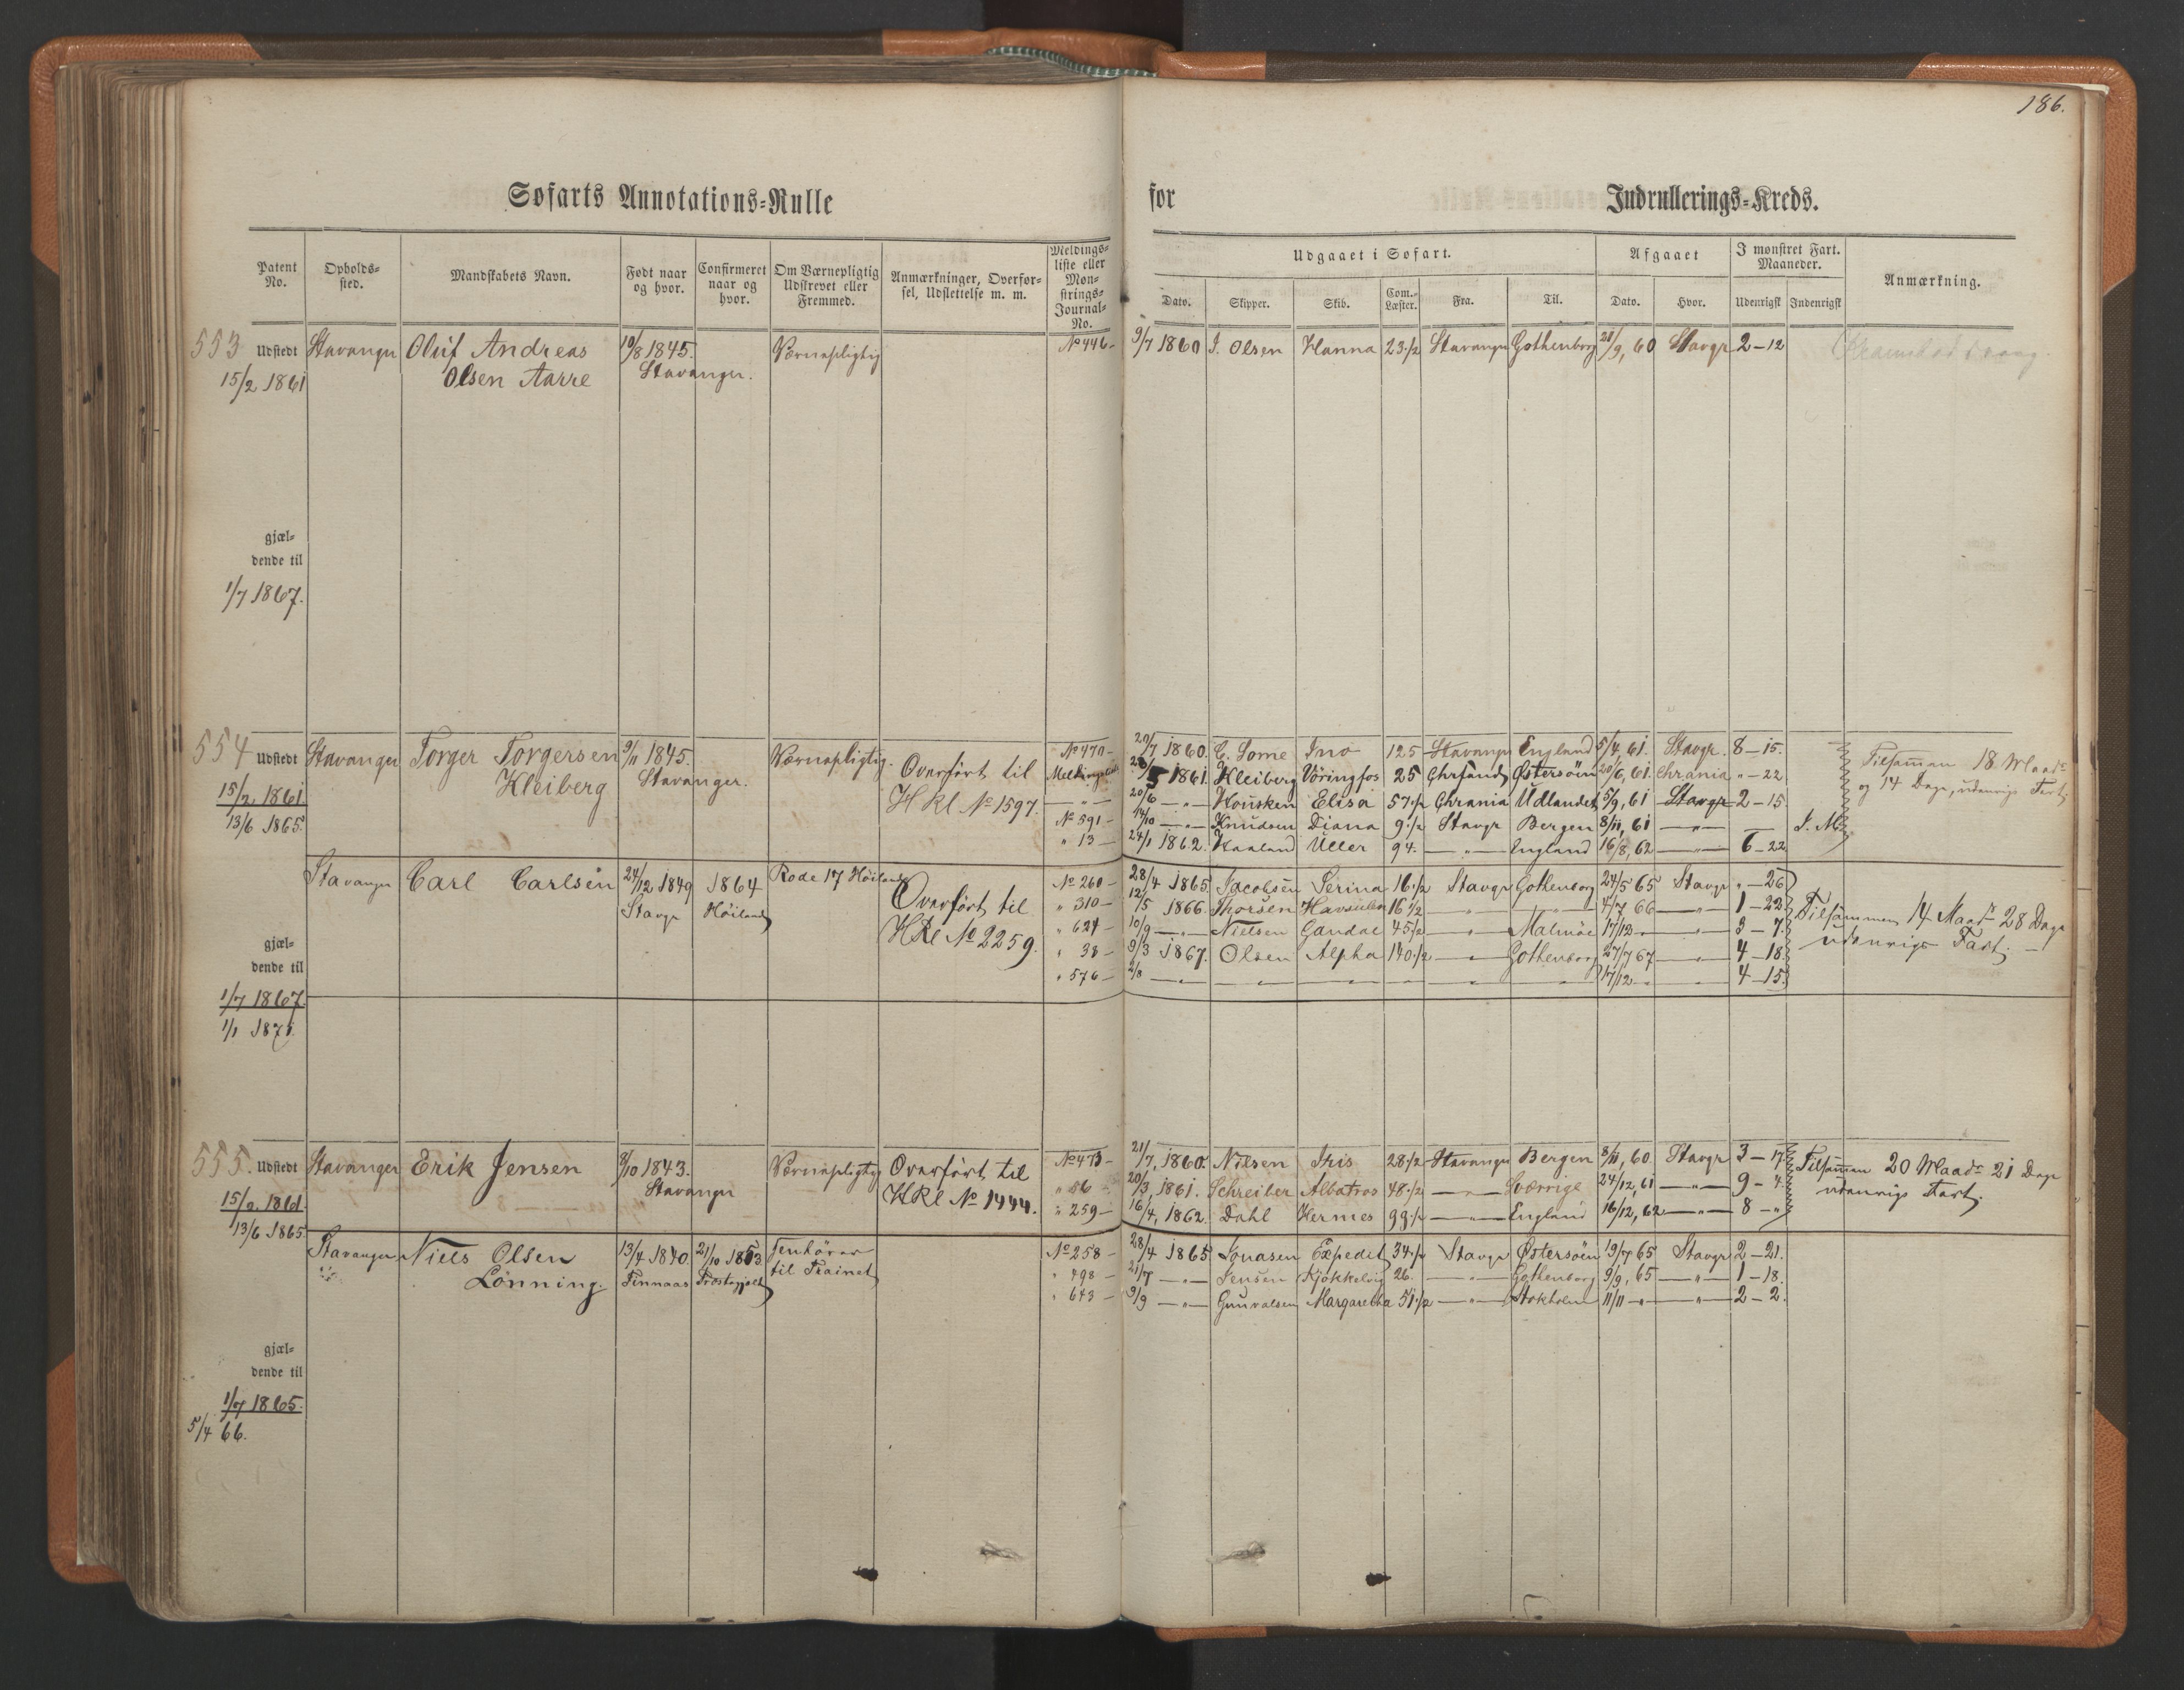 186.
Søfarts Annotations=Rulle for Indrullerings=Kreds.
Patent No. Opholds=sted. Mandskabets Navn. Født naar og hvor. Confirmeret naar og hvor. Om Værnepligtig Udskrevet eller Fremmed. Anmærkninger, Overfør=sel, Udslettelse m. m. Meldings=liste eller Møn=strings=Journal=No.
Udgaaet i Søfart. Afgaaet I mønstret Fart. Maaneder. Anmærkning.
Dato. Skipper. Skib. Com.=Læster. Fra. Til. Dato. Hvor. Udenrigsk Indenrigsk
553 Udstedt Stavanger Oluf Andreas 19/8 1845. Værnepligtig No 446 – 9/7 1860 J. Olsen Hanna 23 1/2 Stavanger Gothenborg 21/9, 60 Stavgr 2 – 12
15/2 1861 Olsen Aarre Stavanger.
gjæl=
dende til
1/7 1867.
554 Udstedt Stavanger Torger Torgersen 9/11 1845. Værnepligtig. Overført til No 470 – 20/7 1860. C. Some Ino 125 Stavanger England 5/4, 61. Stavgr. 8 – 15. Tilsamman 18 Maad
15/2 1861 Kleiberg Stavanger. HRl No 1597. 1861. Kleiberg Vöringfos 25 Chrsand Østersöen 20/6, 61. Chrania " – 22 og 14 Dage, udenrigs Fart
13/6 1865. – " – 20/6 – " – Housken Elisa 57 1/2 Chrania Udlandet 5/9, 61 Stavgr 2 – 15
No 591 – 14/10 – " – Knudsen Diana 9 1/2 Stavgr Bergen 8/11, 61 – " – — J. M.
" 13 – 24/1 1862. Haaland Uller 94. – " – England 16/8, 62 – " – 6 – 22
Stavanger Carl Carlsen 24/12 1849 1864 Rode 17 Höiland Overført til No 260 – 28/4 1865 Jacobsen Serina 16 1/2 Stavgr Gothenborg 24/5 65 Stavgr " – 26
Stavgr Höiland HRl No 2259. " 310 – 12/5 1866. Thorsen 16 1/2 – " – – " – 4/7 66 – " – 1 – 22 Tilsammen 14 Maad 28 Dage
" 624 – 10/9 – " – Nielsen Gandal 45 1/2 – " – Malmöe 17/12 – " – 3 – 7. udenrigs Fart.
gjæl= " 38 – 9/3 1867. Olsen Alpha 140 1/2 – " – Gothenborg 27/7 67 – " – 4 – 18
dende til " 576 – 2/8 – " – – " – – " – – " – – " – – " – 17/12 – " – 4 – 15
1/7 1867.
1/1 1871
555. Udstedt Stavanger Erik Jensen 8/10 1843. Værnepligtig Overført til No 473 – 21/7, 1860. Nilsen Iris 28 1/2 Stavanger Bergen 8/11, 60. Stavgr 3 – 17 Tilsamman 20 Maad 21 Dage
15/2 1861. Stavanger HRl No 1444. " 56 – 20/3, 1861. Schreiber Albatros 48 1/2 – " – Sverrige 24/12, 61 – " – 9 – 4. udenrigs Fart.
13/6 1865 " 259 – 16/4, 1862. Dahl Hermes 99 1/2 – " – England 16/12, 62 – " – 8 – "
Stavanger Niels Olsen 13/4 1840. 21/10 1853. Henhörer No 258 – 28/4 1865 Jonasen Expedit 34 1/2 Stavgr Østersöen 19/7 65 Stavgr 2 – 21.
Lönning. Finnaas til Trainet " 498 – 21/7 – " – Jensen Kjökkelvig 26. – " – Gothenborg 9/9, 65 – " – 1 – 18.
" 643 – 9/9 – " – Gunvalsen Margaretha 51 1/2 – " – Stokholm 11/11 – " – 2 – 2.
gjæl=
dende til
1/7 1865.
5/4 66.